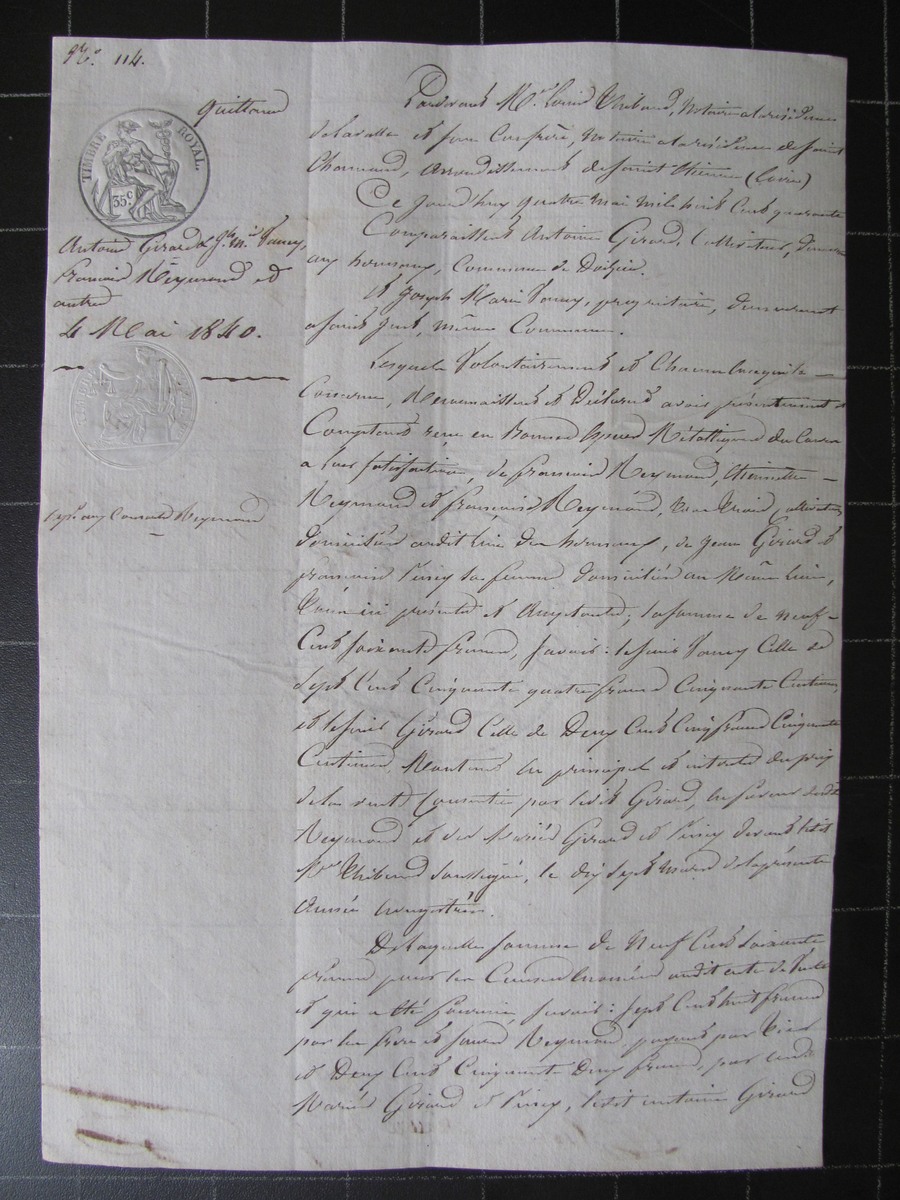 No. 114.
Quittance
TIMBRE ROYAL.
35 c
Antoine Girard & Jh. Mie
François Reymond et
autres
4 Mai 1840.
Reymond
Pardevant Me. Louis Thibaud, Notaire a la résidence
de Lavalla et son Confrère, Notaire a la résidence de Saint
Chamond, arrondissement de Saint Etienne (Loire)
Ce jourd'huy quatre mai mil huit cent quarante
Comparaissent Antoine Girard, Cultivateur, demeurant
aux, Commune de Doizieu.
Et Joseph Marie, propriétaire, demeurant
a Saint Just, même Commune.
Lesquels Volontairement et Chacun en ce qui le
Concerne, Reconnaissent et Déclarent avoir présentement et
Comptant reçu en Bonnes Espèces Métalliques du Cours
a leur satisfaction, de François Reymond, Etiennette
Reymond et Françoise Reymond, cultivateurs
domiciliés audit lieu des, de Jean Girard et
sa femme domiciliés au même lieu,
ici présents et acceptants, la somme de neuf
Cent soixante francs, Savoir: ledit Celle de
Sept Cent Cinquante quatre francs Cinquante Centimes,
et ledit Girard Celle de Deux Cent Cinq francs Cinquante
Centimes, Montant en principal et intérêts du prix
de la vente Consentie par ledit Girard, en faveur desdits
Reymond et des Mariés Girard et devant ledit
Me. Thibaud soussigné, le dix sept mars de la présente
année enregistrée.
De laquelle somme de Neuf Cent Soixante
francs pour les Causes Enoncées audit acte de Vente
et qui a été fournie, Savoir: Sept Cent huit francs
par les frère et sœurs Reymond, payant par Tiers
et Deux Cent Cinquante Deux francs, par lesdits
Mariés Girard et, ledit Antoine Girard